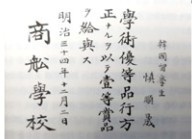 韓國留學生
愼順晟
學術優等品行方
正ナルヲ以テ壹等賞品
ヲ給與ス
明治三十四年十二月二日
商舩學校